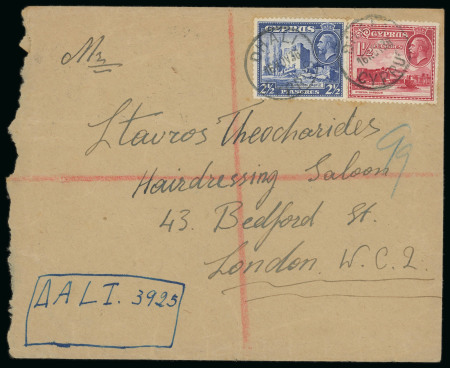 CYPRUS CYPRUS
2½ PIASTRES 2½ 1½
DHALI CYPRUS
Mr
Stavros Theocharides
Hairdressing Saloon
99
43. Bedford St.
London. W.C.2.
ΔALI. 3925